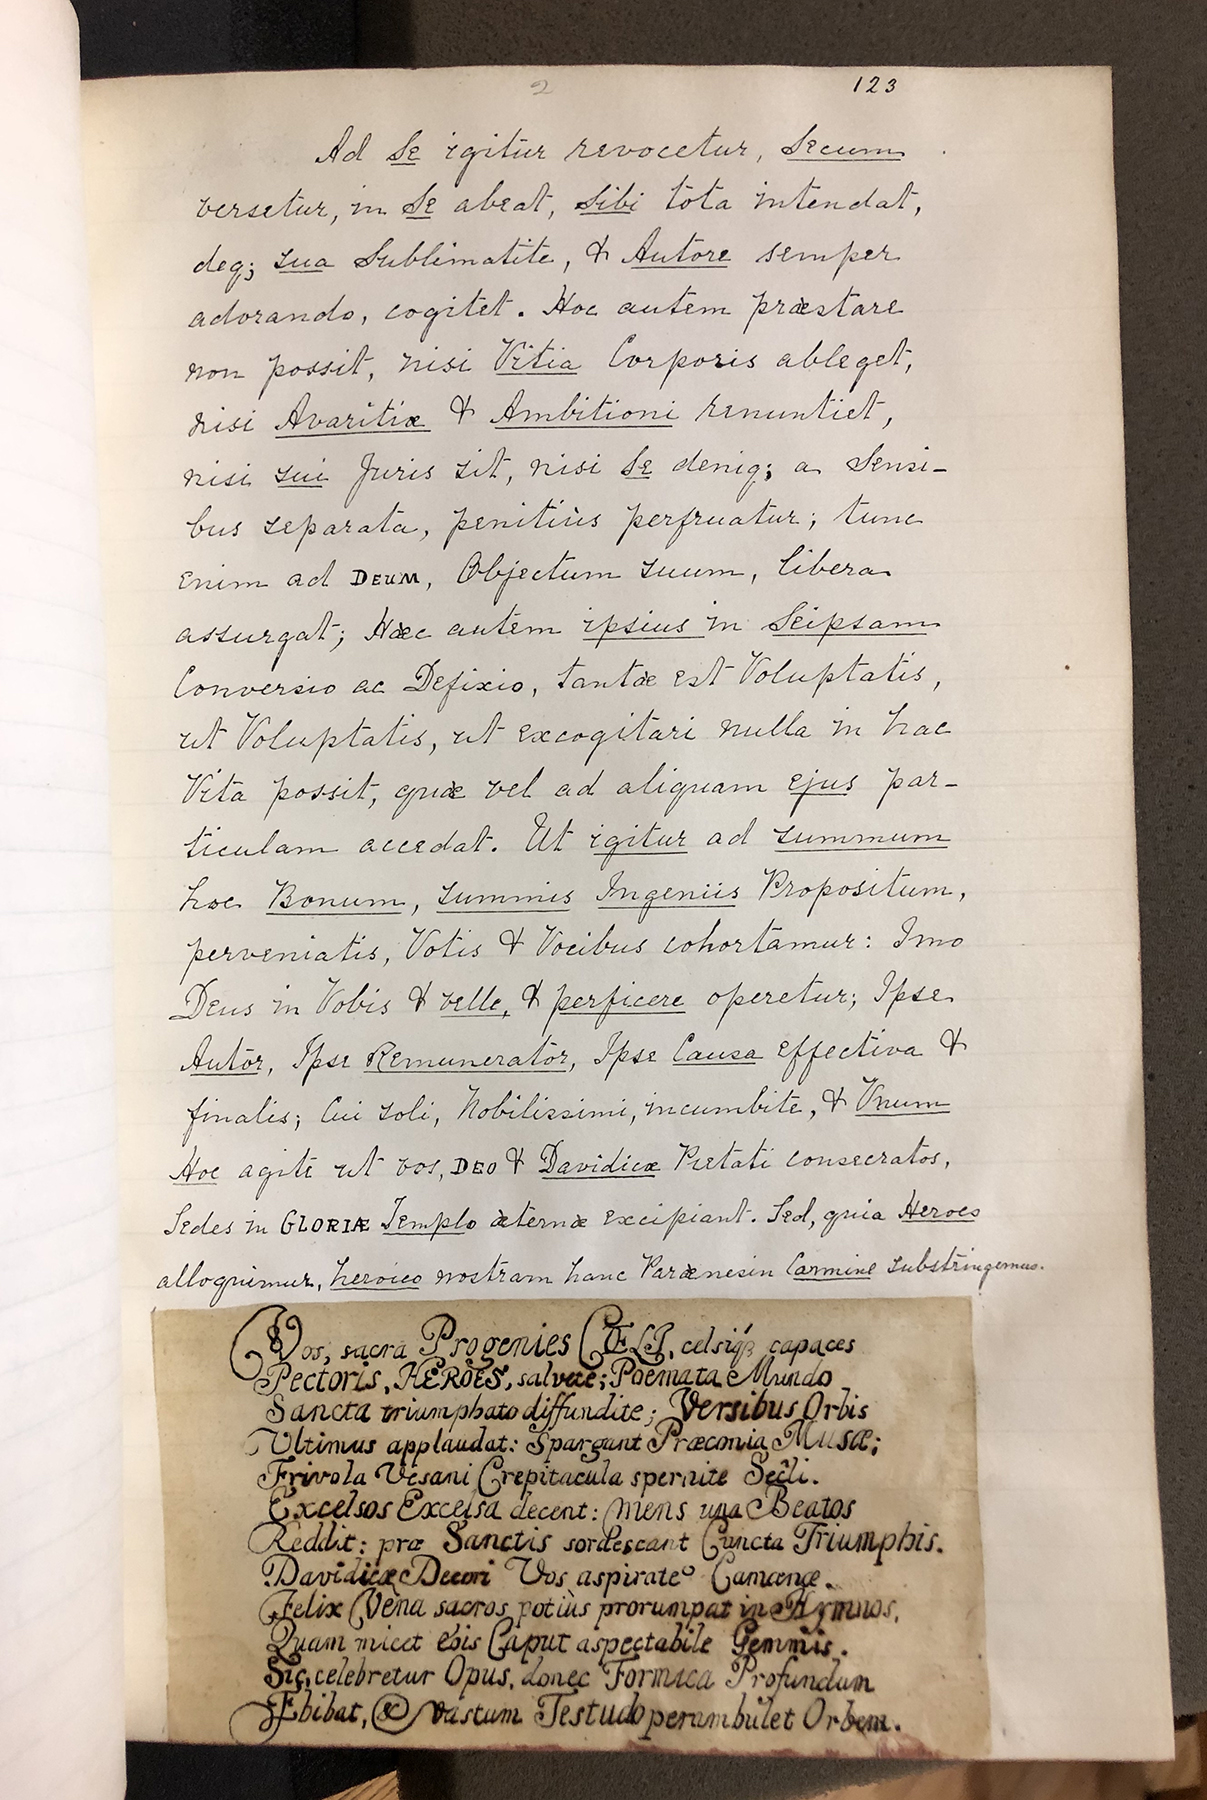 2 123
Ad Se igitur revocetur, Secum
versetur, in Se abeat, sibi tota intendat,
deq; sua Sublimatite, & Autore semper
adorando, cogitet. Hoc autem præstare
non possit, nisi Vitia Corporis ableget,
nisi Avaritiæ & Ambitioni renuntiet,
nisi sui Juris sit, nisi Se deniq; a Sensi-
bus separata, penitiùs perfruatur; tunc
enim ad DEUM, Objectum suum, libera
assurgat; Hæc autem ipsius in Seipsam
Conversio ac Defixio, tantæ est Voluptatis,
ut Voluptatis, ut excogitari nulla in hac
Vita possit, quæ vel ad aliquam ejus par-
ticulam accedat. Ut igitur ad summum
hoc Bonum, summis Ingeniis Propositum,
perveniatis, Votis & Vocibus cohortamur: Imo
Deus in Vobis & velle, & perficere operetur; Ipse
Autor, Ipse Remunerator, Ipse Causa effectiva &
finalis; Cui soli, Nobilissimi, incumbite, & Vnum
Hoc agite ut vos, DEO & Davidicæ Pietati consecratos,
Sedes in GLORIÆ Templo æternæ excipiant. Sed, quia Heroes
alloquimur, heroico nostram hanc Parænesin Carmine substringemus.
Vos, sacra Progenies CŒLI, celsiq; capaces
Pectoris, HEROES, salvete; Poemata Mundo
Sancta triumphato diffundite; Versibus Orbis
Ultimus applaudat: Spargant Præconia Musæ;
Frivola Vesani Crepitacula spernite Secli.
Excelsos Excelsa decent: mens una Beatos
Reddit: præ Sanctis sordescant Cuncta Triumphis.
Davidicæ Decori Vos aspirate Camœnæ.
Felix Vena sacros potiùs prorumpat in Hymnos,
Quam micet Caput aspectabile Gemmis.
Sic celebretur Opus, donec Formica Profundum
Ebibat, & vastum Testudo perambulet Orbem.